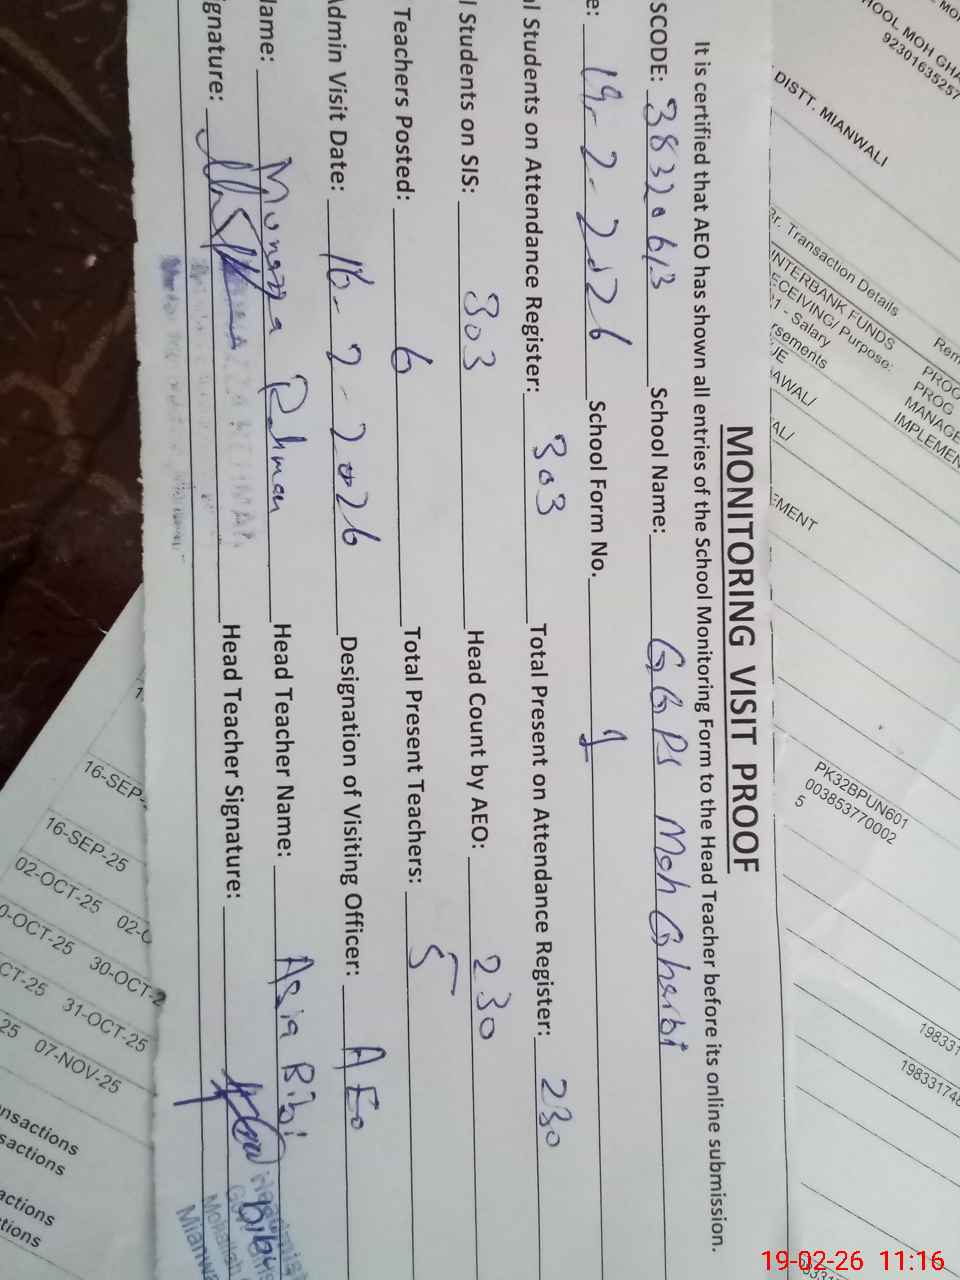 MONITORING VISIT PROOF
It is certified that AEO has shown all entries of the School Monitoring Form to the Head Teacher before its online submission.
SCODE: 38320613 School Name: GGPS Moh Gharbi
e: 19-2-2026 School Form No. 1
al Students on Attendance Register: 303 Total Present on Attendance Register: 230
l Students on SIS: 303 Head Count by AEO: 230
Teachers Posted: 6 Total Present Teachers: 5
Admin Visit Date: 16-2-2026 Designation of Visiting Officer: AEO
Name: Rahman Head Teacher Name: Asia Bibi
ignature: Head Teacher Signature:
HOOL MOH GHA
92301635257
DISTT. MIANWALI
Br. Transaction Details
INTERBANK FUNDS
ECEIVING/ Purpose:
1 - Salary
rsements
UE
AWAL/
AL/
EMENT
Rem
PROG
PROG
MANAGE
IMPLEMEN
PK32BPUN601
003853770002
5
198331
198331748
16-SEP-
16-SEP-25
02-OCT-25 02-
0-OCT-25 30-OCT-2
CT-25 31-OCT-25
25 07-NOV-25
nsactions
sactions
actions
tions
19-02-26 11:16